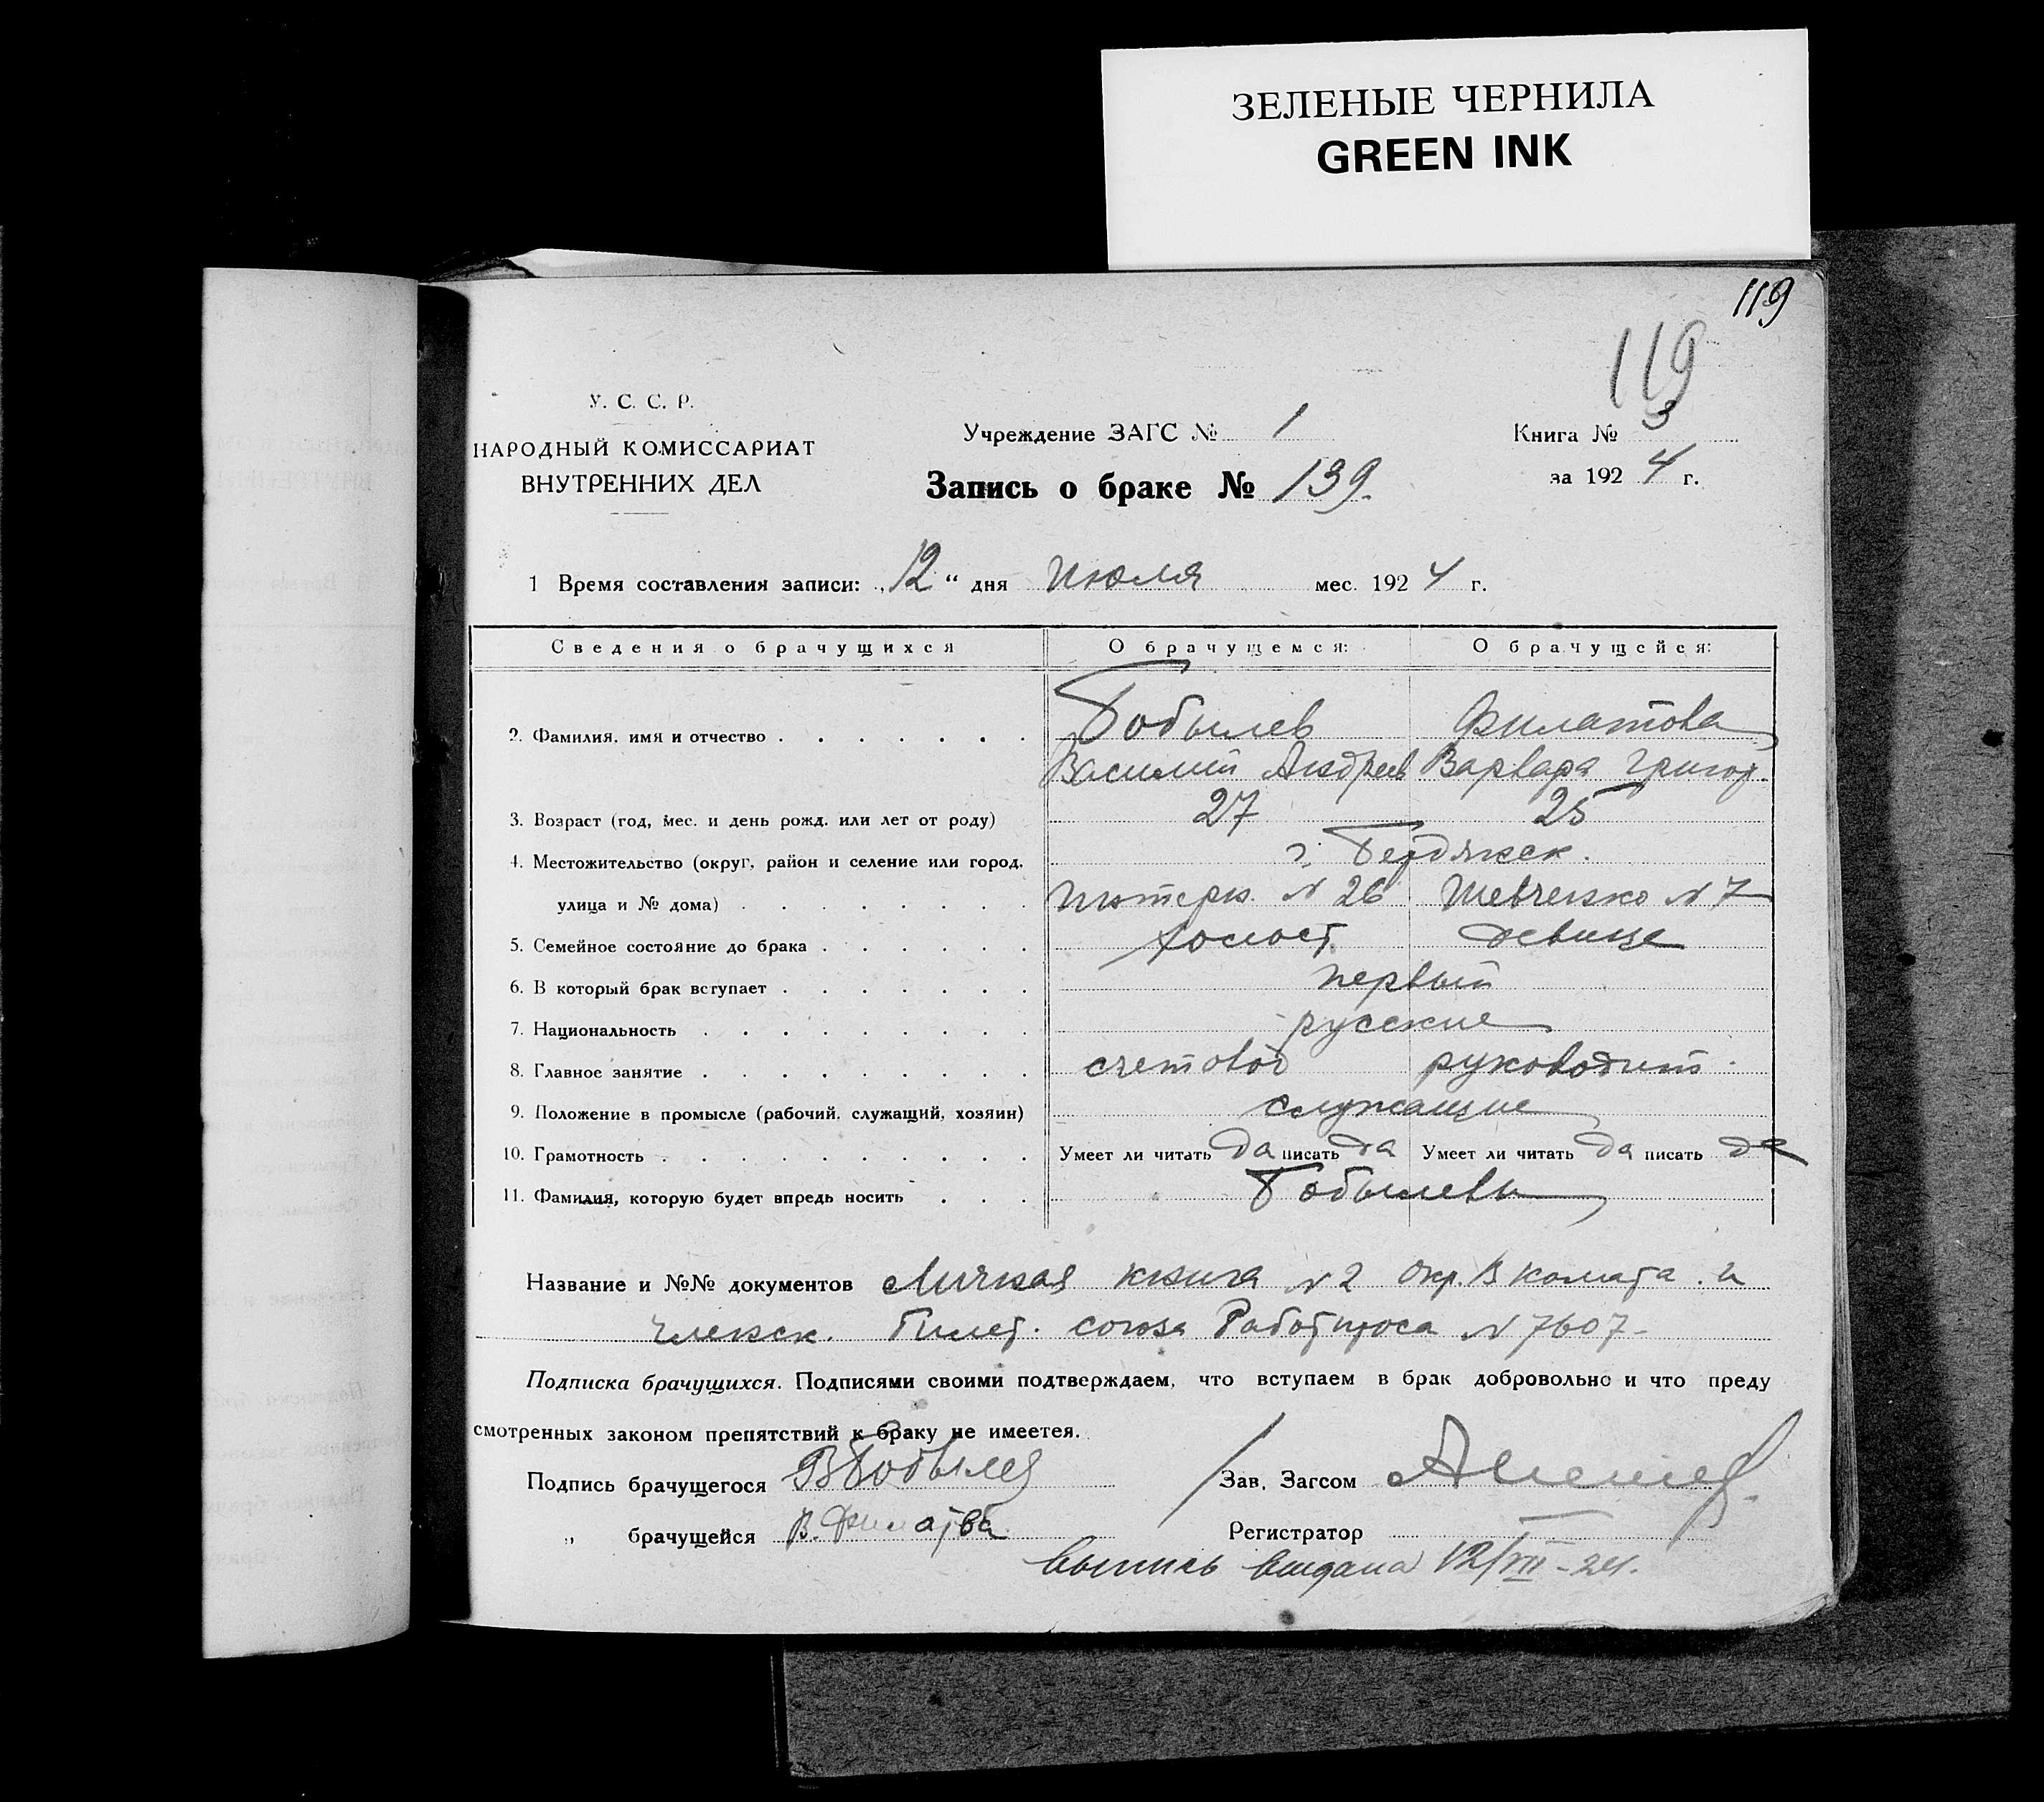 ЗЕЛЕНЫЕ ЧЕРНИЛА
GREEN INK
119
119
У. С. С. Р.
НАРОДНЫЙ КОМИССАРИАТ
ВНУТРЕННИХ ДЕЛ
Учреждение ЗАГС № 1
Книга № 3
Запись о браке № 139.
за 1924 г.
1 Время составления записи: „12“ дня Июля мес. 1924 г.
Сведения о брачущихся О брачущемся: О брачущейся:
2. Фамилия, имя и отчество . . . . . . . Бобылев Филатова
Василий Андреев Варвара Григор.
3. Возраст (год, мес. и день рожд. или лет от роду) 27 25
4. Местожительство (округ, район и селение или город, г. Бердянск.
улица и № дома) . . . . . . . . Интерн. N 26 Шевченко N 7
5. Семейное состояние до брака . . . . . . холост девица
6. В который брак вступает . . . . . . . первый
7. Национальность . . . . . . . . . русские
8. Главное занятие . . . . . . . . . счетовод руководит.
9. Положение в промысле (рабочий, служащий, хозяин) служащие
10. Грамотность . . . . . . . . . . Умеет ли читать да писать да Умеет ли читать да писать да
11. Фамилия, которую будет впредь носить . . . Бобылевы
Название и №№ документов Личная книга N 2 Окр. В комата. и
членск. билет. союза Работпроса N 7607-
Подписка брачущихся. Подписями своими подтверждаем, что вступаем в брак добровольно и что преду
смотренных законом препятствий к браку не имеется.
Подпись брачущегося ВБобылев Зав. Загсом
„ брачущейся В. Филатова Регистратор
выпись выдана 12/VII-24.